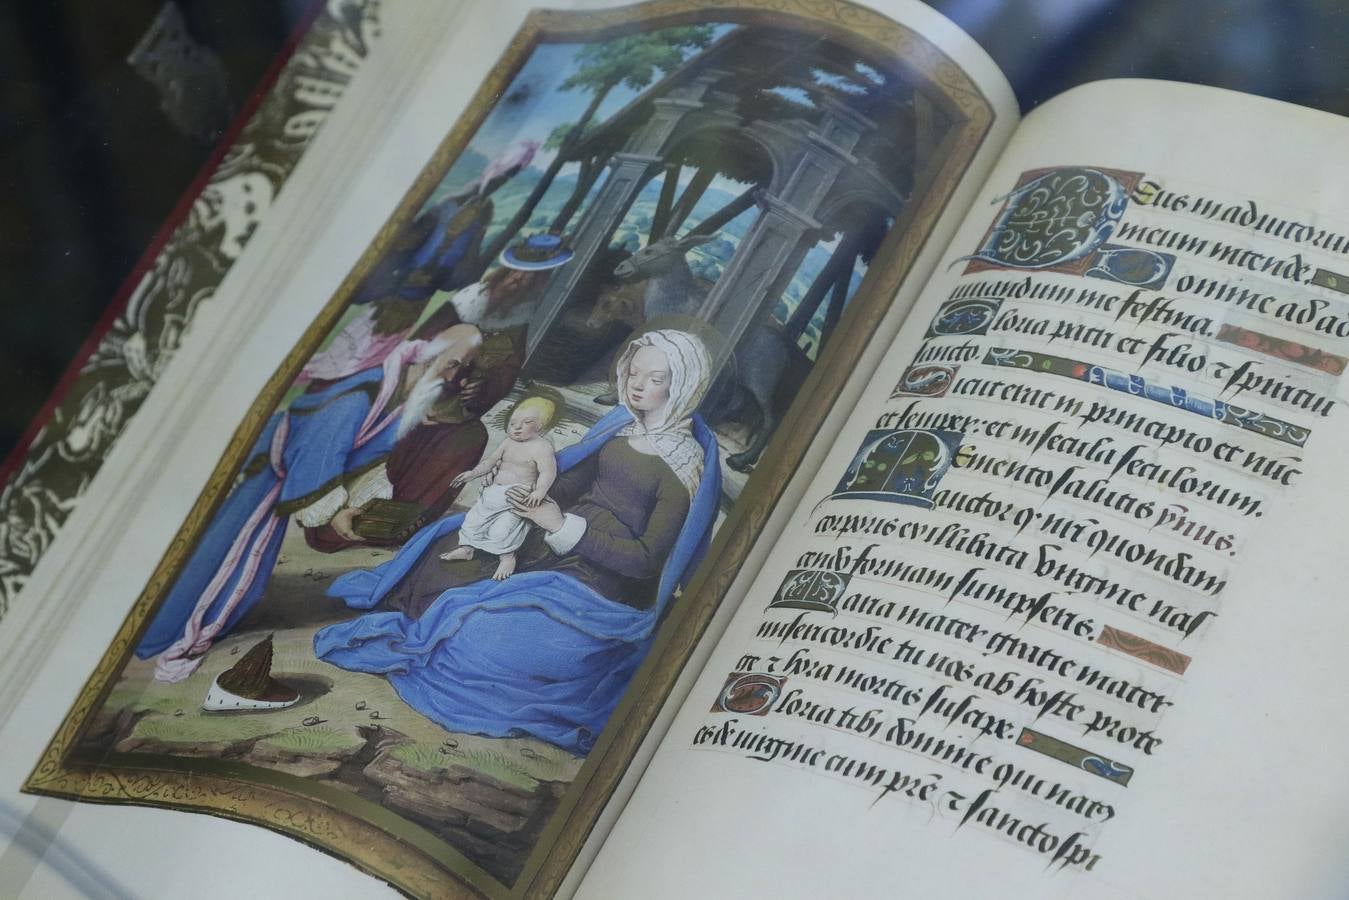 Deus in adiutoriu
meum intende.
omine ad ad
iuuandum me festina.
loria patri et filio ⁊ spiritui
sancto.
icut erat in principio et nūc
et semper: et in secula seculorum.
Emento salutis ẏmus.
auctor q nr̄i quondam
corporis ex illibata virgine nas
cendo formam sumpseris.
aria mater gratie mater
misericordie tu nos ab hoste prote
ge ⁊ hora mortis suscipe.
loria tibi domine qui natꝰ
es de uirgine cum prē ⁊ sancto spi